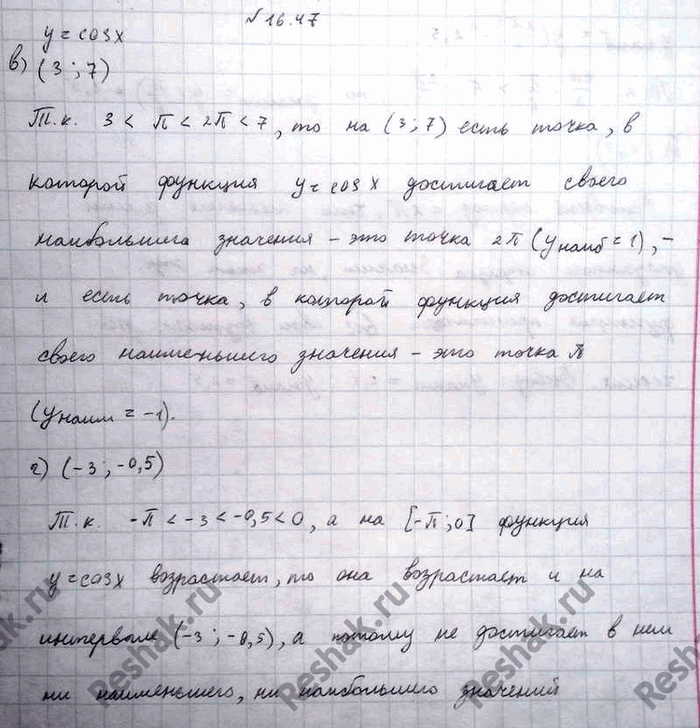 №16.47
y = cosx
в) (3; 7)
Т.к. 3 < π < 2π < 7, то на (3; 7) есть точка, в
которой функция y = cos x достигает своего
наибольшего значения – это точка 2π (yнаиб = 1), –
и есть точка, в которой функция достигает
своего наименьшего значения – это точка π
(yнаим = -1).
г) (-3; -0,5)
Т.к. -π < -3 < -0,5 < 0, а на [-π; 0] функция
y = cosx возрастает, то она возрастает и на
интервале (-3; -0,5), а потому не достигает в нем
ни наименьшего, ни наибольшего значений
Reshak.ru
Reshak.ru
Reshak.ru
Reshak.ru